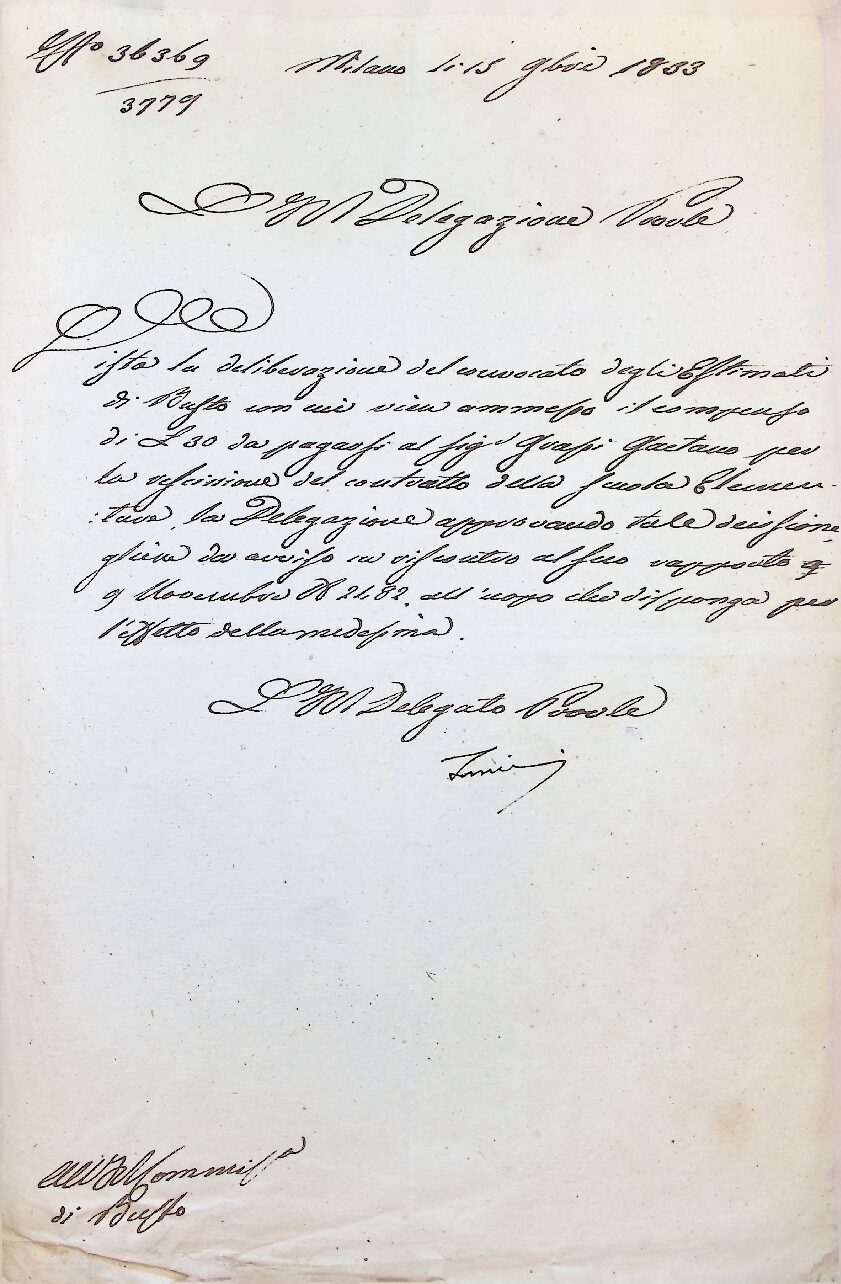 N° 36369
3779
Milano li 15 9bre 1833
L'I R Delegazione Provle
Vista la deliberazione del convocato degli Estimati
di Busto con cui vien ammesso il compenso
di L 30 da pagarsi al Sigr Grassi Gaetano per
la rescissione del contratto della scuola Elemen-
:tare, la Delegazione approvando tale decisione
gliene da avviso in riscontro al suo rapporto
9 Novembre N 2482. all'uopo che disponga per
l'effetto della medesima.
L'I R Delegato Provle
All' I R Commissº
di Busto